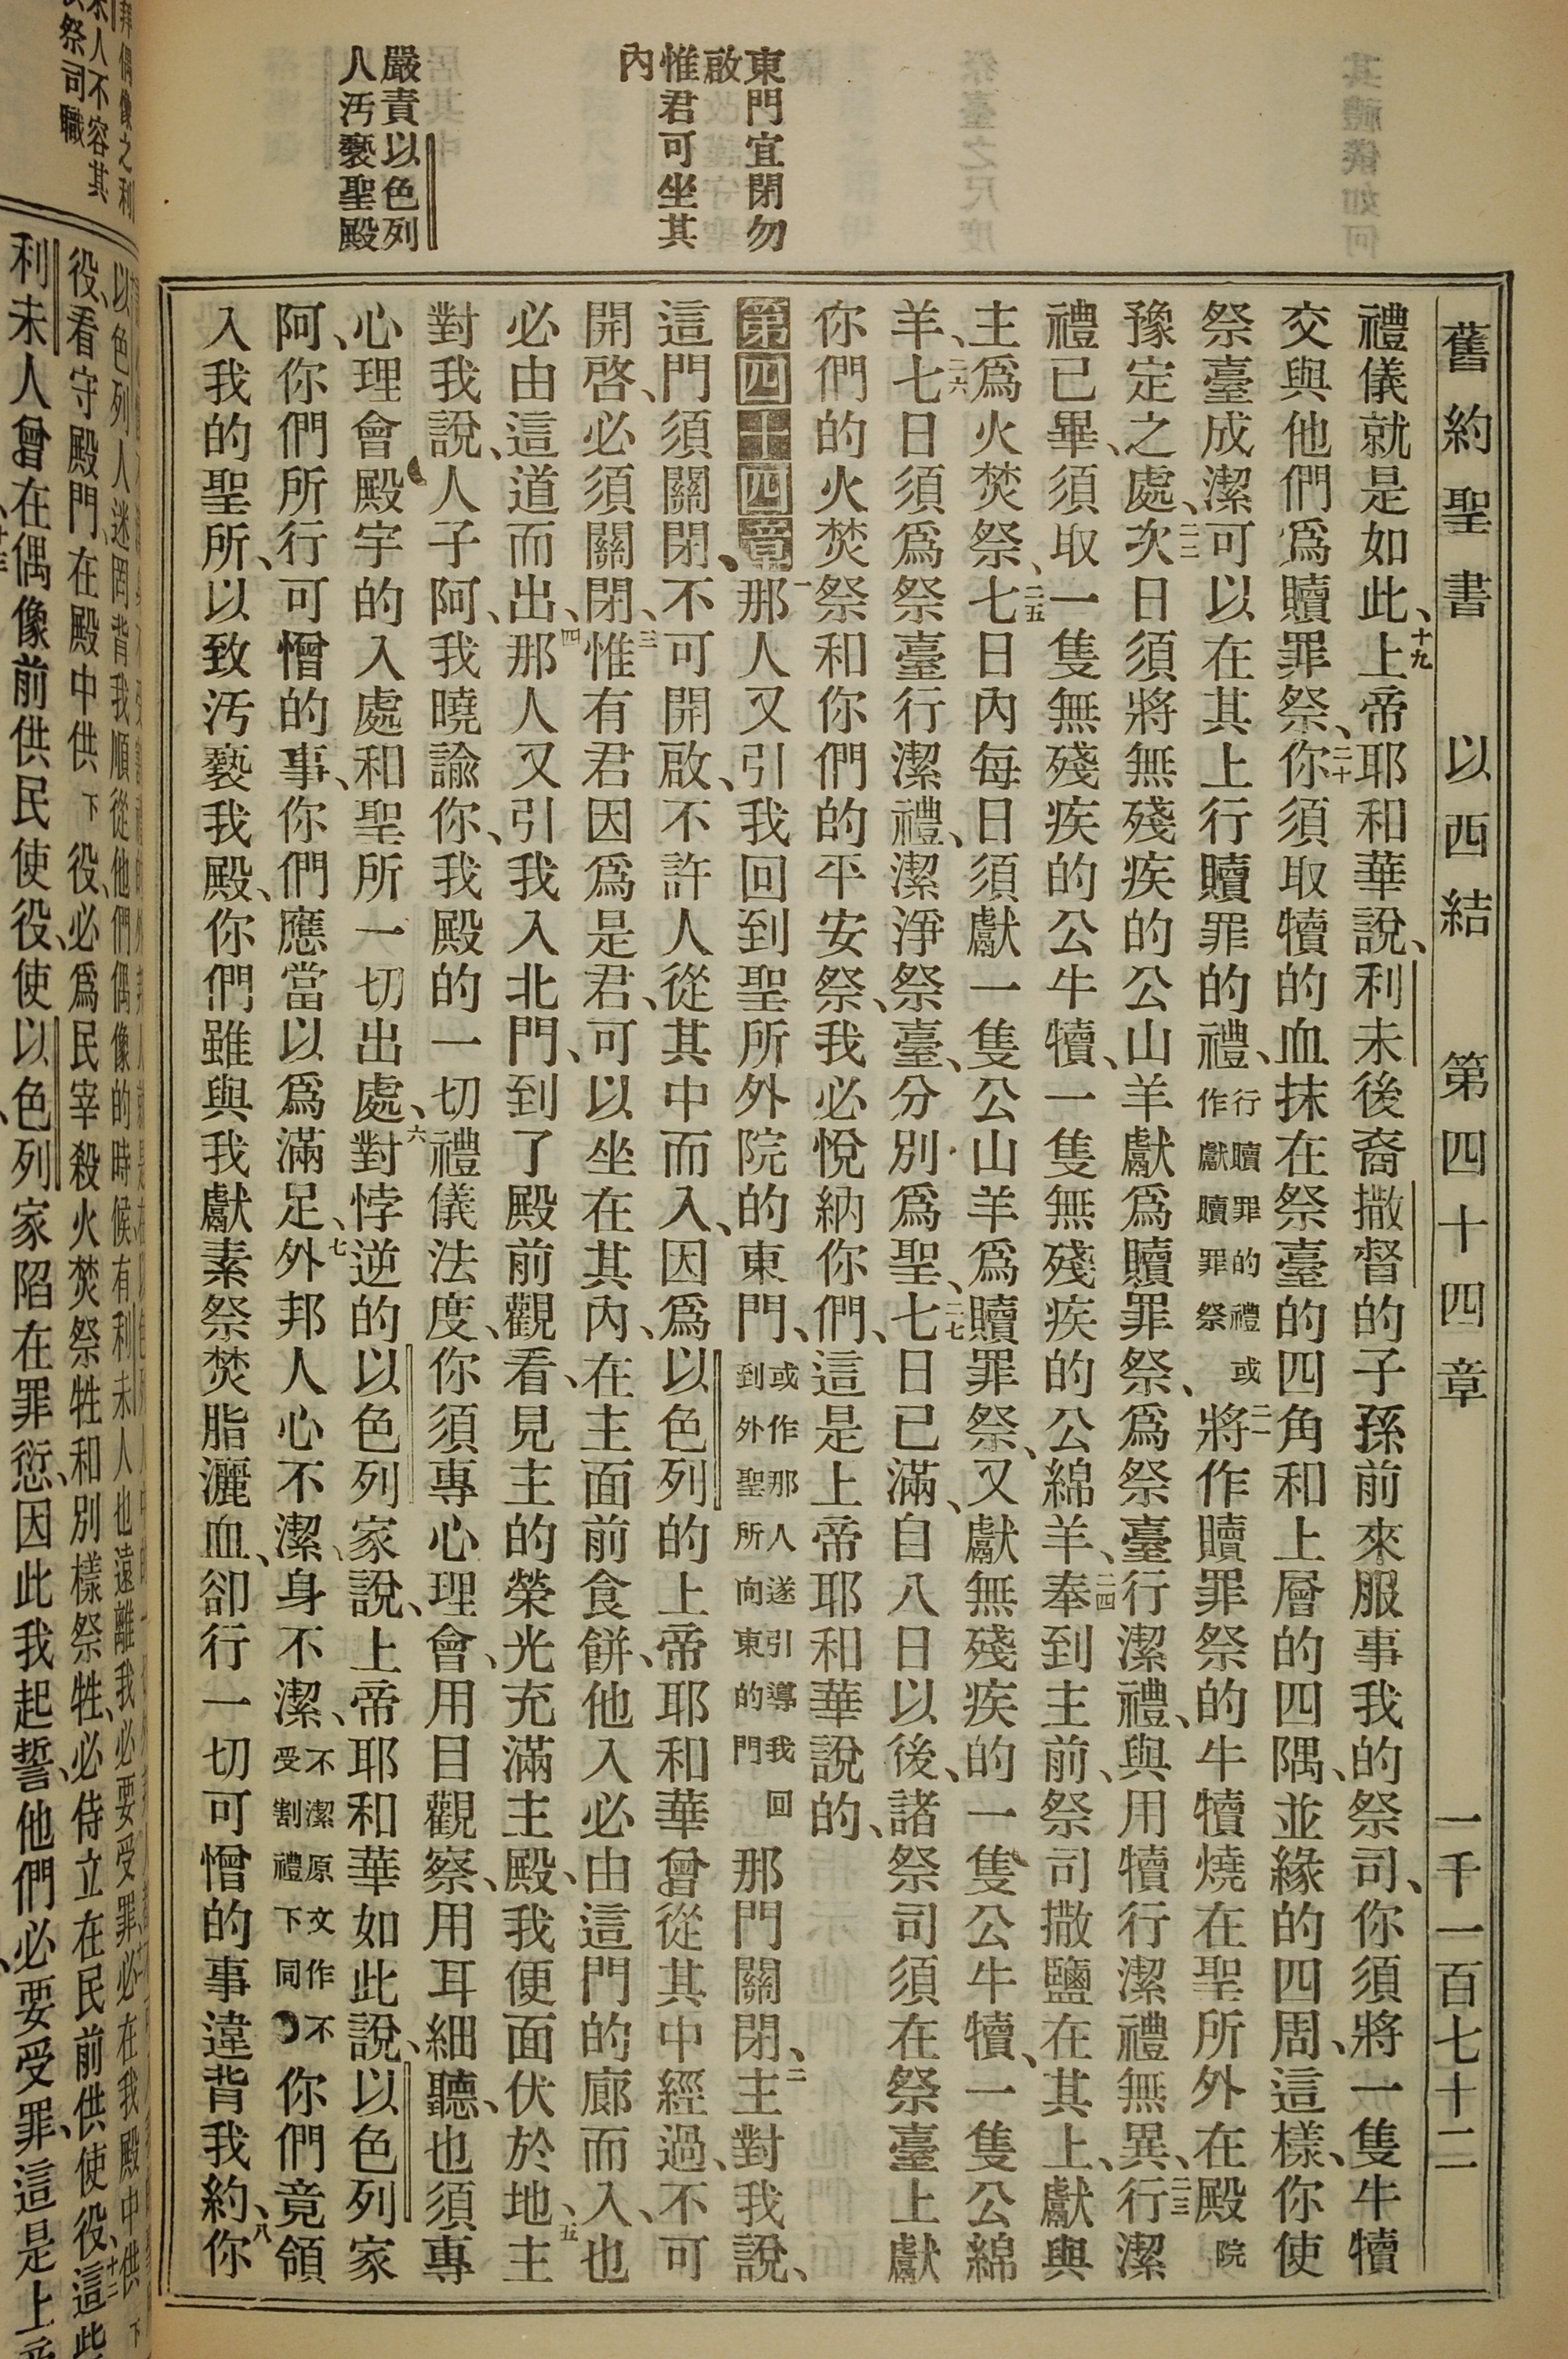 舊約聖書 以西結 第四十四章 一千一百七十二
東門宜閉勿
啟
惟君可坐其
內
嚴責以色列
人汚褻聖殿
禮儀就是如此、十九上帝耶和華說、利未後裔撒督的子孫前來服事我的祭司、你須將一隻牛犢
交與他們爲贖罪祭、二十你須取犢的血抹在祭臺的四角和上層的四隅、並緣的四周、這樣、你使
祭臺成潔可以在其上行贖罪的禮、行贖罪的禮或作獻贖罪祭二一將作贖罪祭的牛犢燒在聖所外在殿院
豫定之處、二二次日須將無殘疾的公山羊獻爲贖罪祭、爲祭臺行潔禮、與用犢行潔禮無異、二三行潔
禮已畢、須取一隻無殘疾的公牛犢、一隻無殘疾的公綿羊、二四奉到主前、祭司撒鹽在其上、獻與
主爲火焚祭、二五七日內每日須獻一隻公山羊爲贖罪祭、又獻無殘疾的一隻公牛犢、一隻公綿
羊、二六七日須爲祭臺行潔禮、潔淨祭臺、分別爲聖、二七七日已滿、自八日以後、諸祭司須在祭臺上獻
你們的火焚祭和你們的平安祭、我必悅納你們、這是上帝耶和華說的、
第四十四章 一那人又引我回到聖所外院的東門、或作那人遂引導我回到外聖所向東的門那門關閉、二主對我說、
這門須關閉、不可開啟、不許人從其中而入、因爲以色列的上帝耶和華曾從其中經過、不可
開啓、必須關閉、三惟有君因爲是君、可以坐在其內、在主面前食餅、他入必由這門的廊而入、也
必由這道而出、四那人又引我入北門、到了殿前觀看、見主的榮光充滿主殿、我便面伏於地、五主
對我說、人子阿、我曉諭你、我殿的一切禮儀法度、你須專心理會、用目觀察、用耳細聽、也須專
心理會殿宇的入處和聖所一切出處、六對悖逆的以色列家說、上帝耶和華如此說、以色列家
阿、你們所行可憎的事、你們應當以爲滿足、七外邦人心不潔、身不潔、不潔原文作不受割禮下同你們竟領
入我的聖所、以致汚褻我殿、你們雖與我獻素祭焚脂灑血、卻行一切可憎的事違背我約、八你
拜偶像之利
未人不容其
供祭司職
役、看守殿門、在殿中供下役、必爲民宰殺火焚祭牲和別樣祭牲、必侍立在民前供使役、十二這些
利未人曾在偶像前供民使役、使以色列家陷在罪愆、因此我起誓、他們必要受罪、這是上